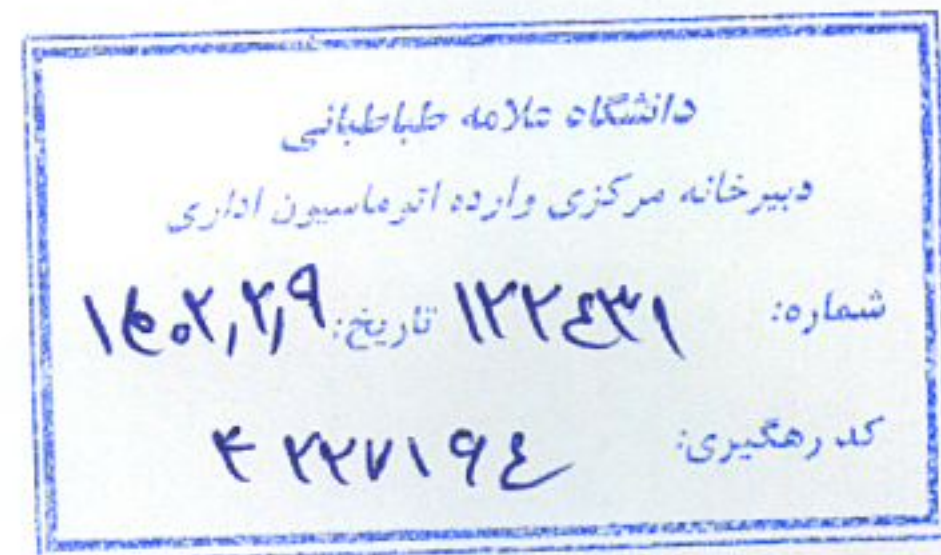 دانشگاه علامه طباطبائی
دبیرخانه مرکزی وارده اتوماسیون اداری
شماره: ۱۲۲۴۳۱ تاریخ: ۱۴۰۲,۲,۹
کد رهگیری: ۴۲۲۷۱۹۴